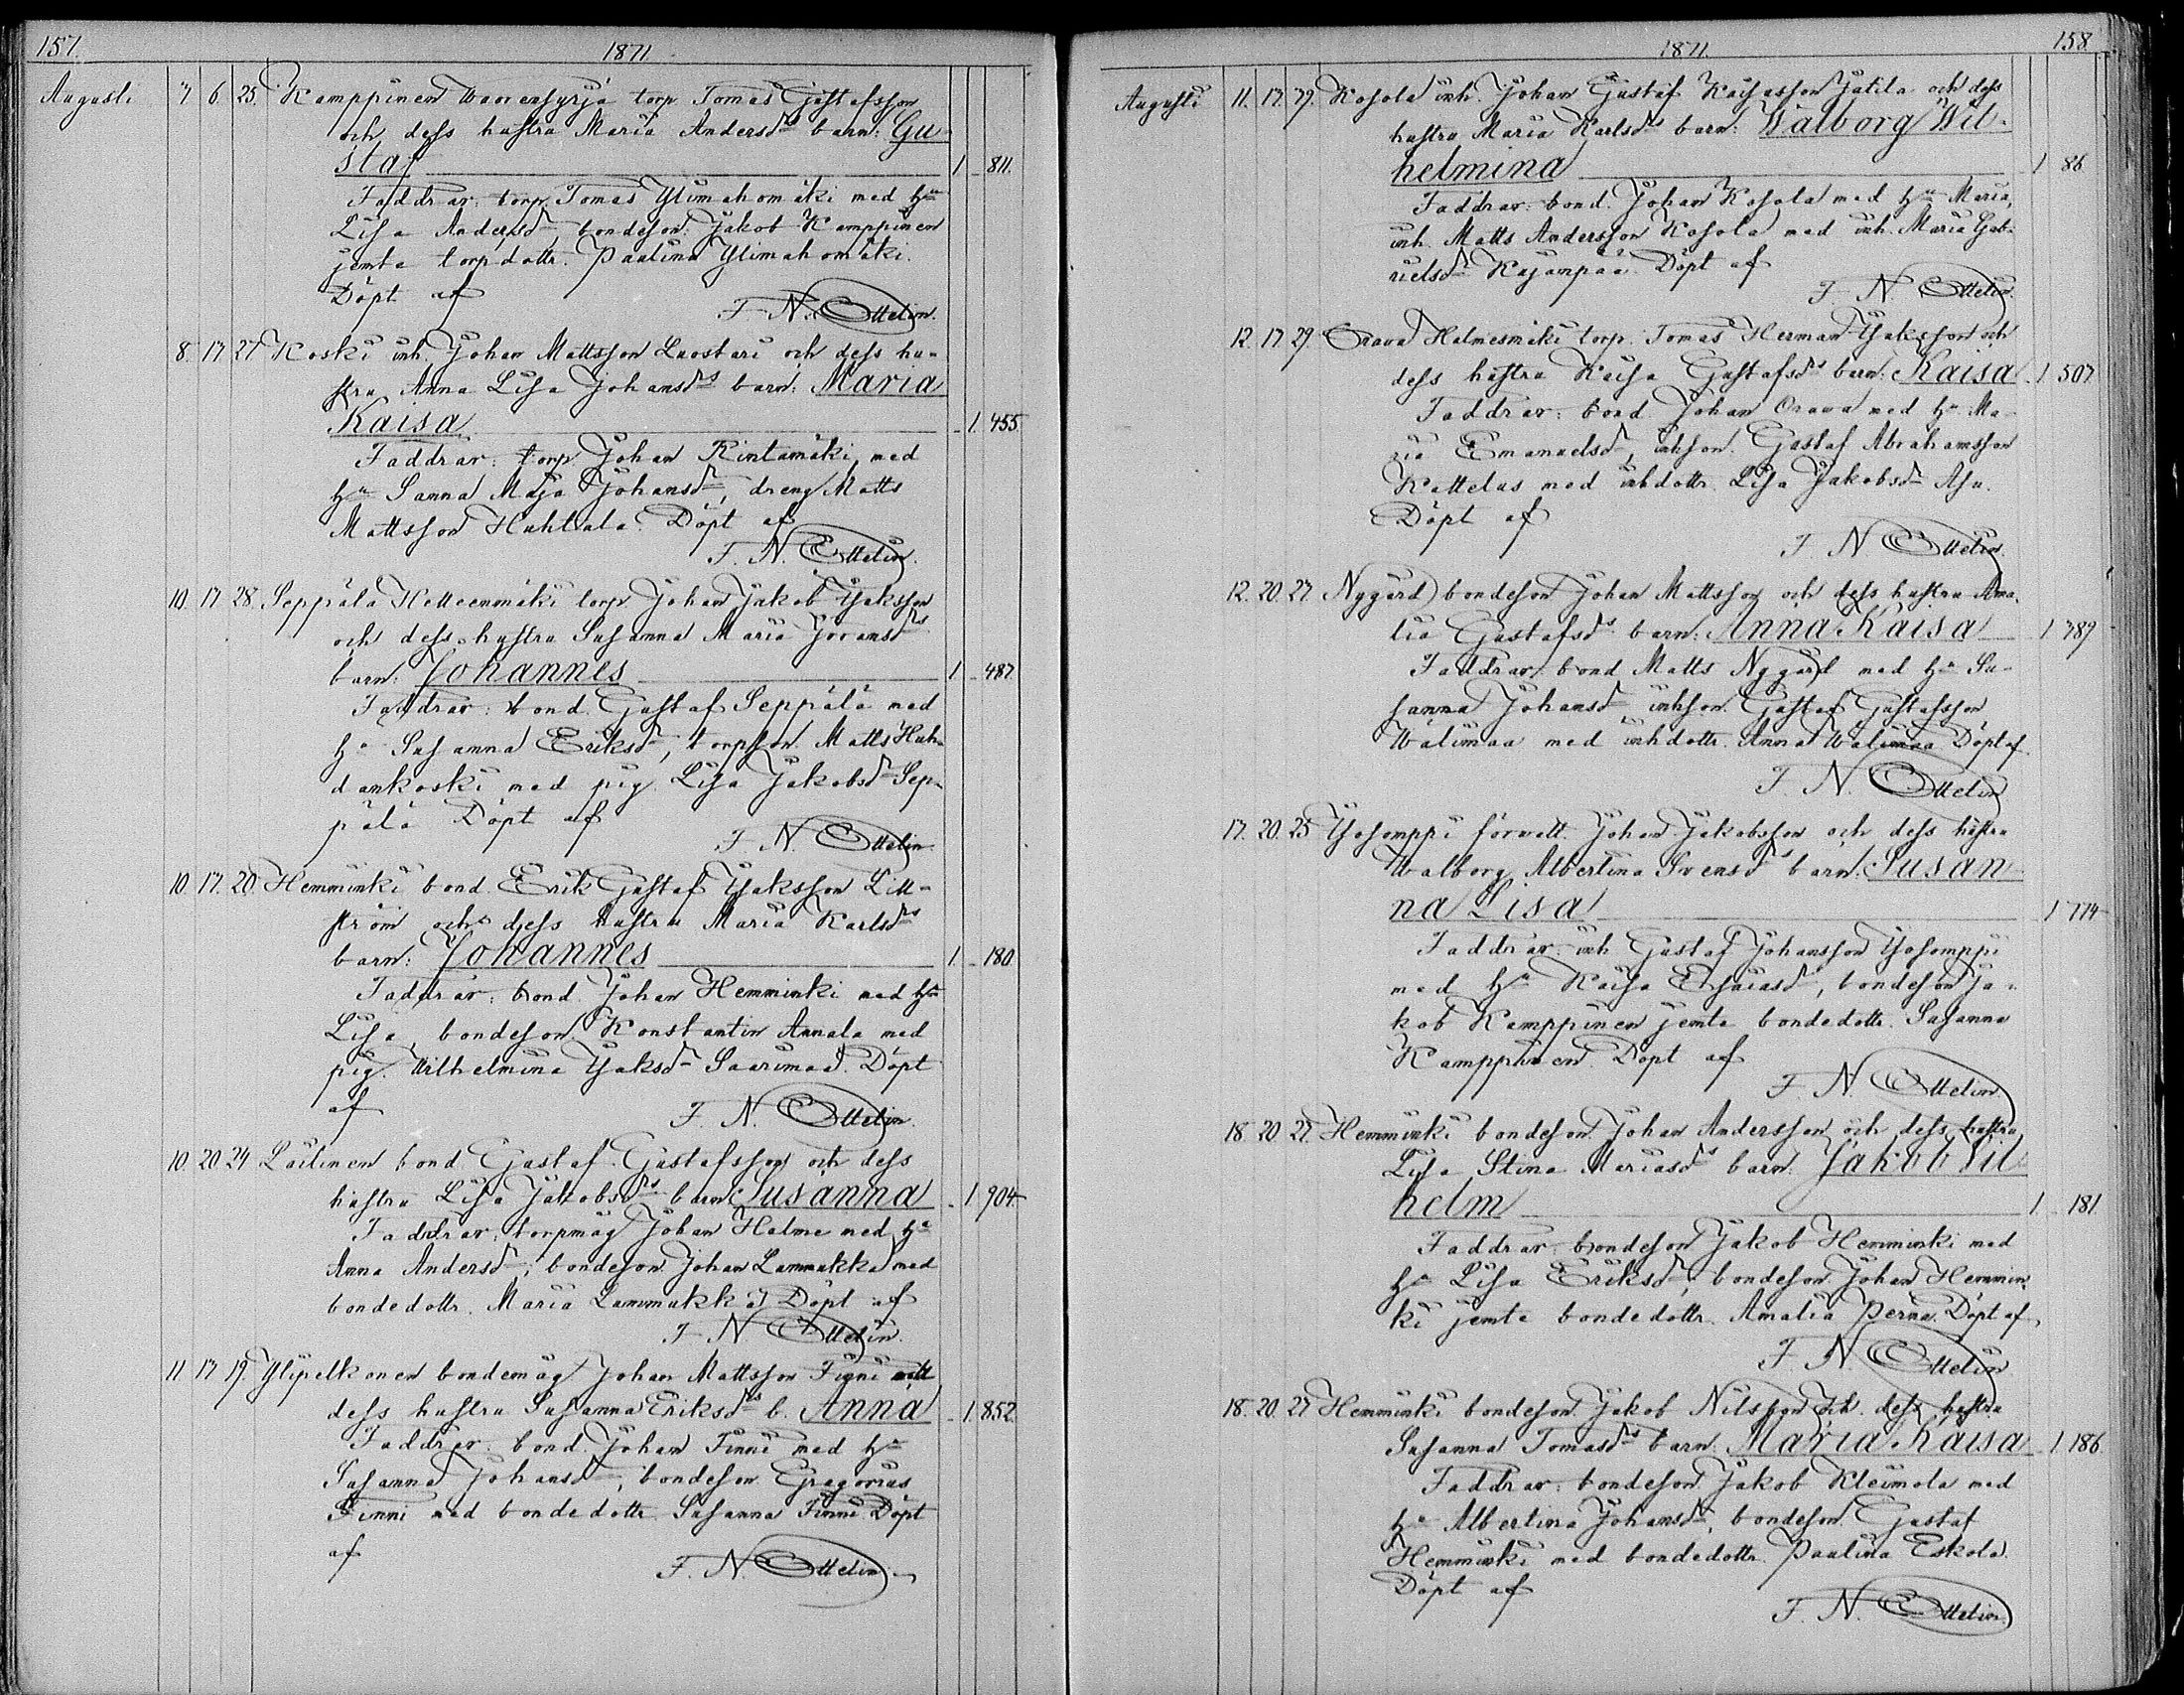 157.
1871.
Augusti 7 6. 25. Kamppinen Wuorensyrjä torp. Tomas Gustafsson
och dess hustru Maria Andersdrs barn: Gu-
staf 1 811.
Faddrar: torp. Tomas Ylimahomäki med hu
Lisa Andersdr, bondeson. Jakob Kamppinen
jemte torpdottr. Paulina Ylimahomäki.
Döpt af
F. N. Ottelin.
8. 17 27 Koski inh. Johan Mattsson Luostari och dess hu-
stru Anna Lisa Johansdrs barn: Maria
Kaisa 1. 455.
Faddrar: torp. Johan Rintamäki med
hu Sanna Maja Johansdr, dreng Matts
Mattsson Huhtala. Döpt af
F. N. Ottelin.
10. 17 28. Seppälä torp. Johan Jakob Jaksson
och dess hustru Susanna Maria Göransdrs
barn: Johannes 1 487.
Faddrar: bond. Gustaf Seppälä med
hu Susanna Eriksdr, torpson. Matts Huh-
dankoski med pig. Lisa Jakobsdr Sep-
pälä Döpt af
F. N. Ottelin.
10. 17. 20. Hemminki bond. Erik Gustaf Jaksson Lill-
ström och dess hustru Maria Karlsdrs
barn: Johannes 1. 180.
Faddrar: bond. Johan Hemminki med hu
Lisa, bondeson. Konstantin Annala med
pig. Wilhelmina Jaksdr Saarimaa. Döpt
af F. N. Ottelin.
10. 20 24 Laitinen bond. Gustaf Gustafsson och dess
hustru Lisa Jakobsdrs barn: Susanna 1 904.
Faddrar: torpmåg Johan Halme med hu
Anna Andersdr, bondeson. Johan Lammukka med
bondedottr. Maria Lammukka Döpt af
F. N. Ottelin.
11 17 19. Ylipelkonen bondemåg Johan Mattsson Finni och
dess hustru Susanna Eriksdrs b. Anna 1. 852.
Faddrar: bond. Johan Finni med hu
Susanna Johansdr, bondeson. Gregorius
Finni med bondedottr. Susanna Finni Döpt
af
F. N. Ottelin.
1871.
158
Augusti 11. 17. 29. Kosola inh. Johan Gustaf Kaisasson Jätilä och dess
hustru Maria Karlsdrs barn: Walborg Wil-
helmina 1 86
Faddrar: bond. Johan Kosola med hu Maria,
inh. Matts Andersson Kosola med inh. Maria Gab-
rielsdr Kujanpää. Döpt af
F. N. Ottelin.
12. 17 29. Orava Halmesmäki torp. Tomas Herman Jaksson och
dess hustru Kaisa Gustafsdrs barn: Kaisa 1 507
Faddrar: bond. Johan Orava med hu Ma-
ria Emanuelsdr, inhson. Gustaf Abrahamsson
Kattelus med inhdottr. Lisa Jakobsdr Asu.
Döpt af
F. N. Ottelin.
12. 20. 27. Nygård bondeson Johan Mattsson och dess hustru Ama-
lia Gustafsdrs barn: Anna Kaisa 1 789
Faddrar: bond Matts Nygård med hu Su-
sanna Johansdr inhson. Gustaf Gustafsson
Wälimaa med inhdottr. Anna Wälimaa Döpt af
F. N. Ottelin
17. 20. 25 Yosomppi förvalt. Johan Jakobsson och dess hustru
Walborg Albertina Svensdrs barn: Susan-
na Lisa 1 774
Faddrar: inh Gustaf Johansson Yosomppi
med hu Kaisa Esaiasdr, bondeson Ja-
kob Kamppinen jemte bondedottr. Susanna
Kamppinen Döpt af
F. N. Ottelin
18. 20 27 Hemminki bondeson Johan Andersson och dess hustru
Lisa Stina Mariasdrs barn: Jakob Vil
helm 1 181
Faddrar: bondeson Jakob Hemminki med
hu Lisa Eriksdr, bondeson. Johan Hemmin-
ki jemte bondedottr. Amalia Perna. Döpt af
F. N. Ottelin
18. 20. 27 Hemminki bondeson Jakob Nilsson och dess hustru
Susanna Tomasdrs barn: Maria Kaisa 1 186.
Faddrar: bondeson Jakob Kleimola med
hu Albertina Johansdr, bondeson. Gustaf
Hemminki med bondedottr. Paulina Eskola.
Döpt af
F. N. Ottelin.